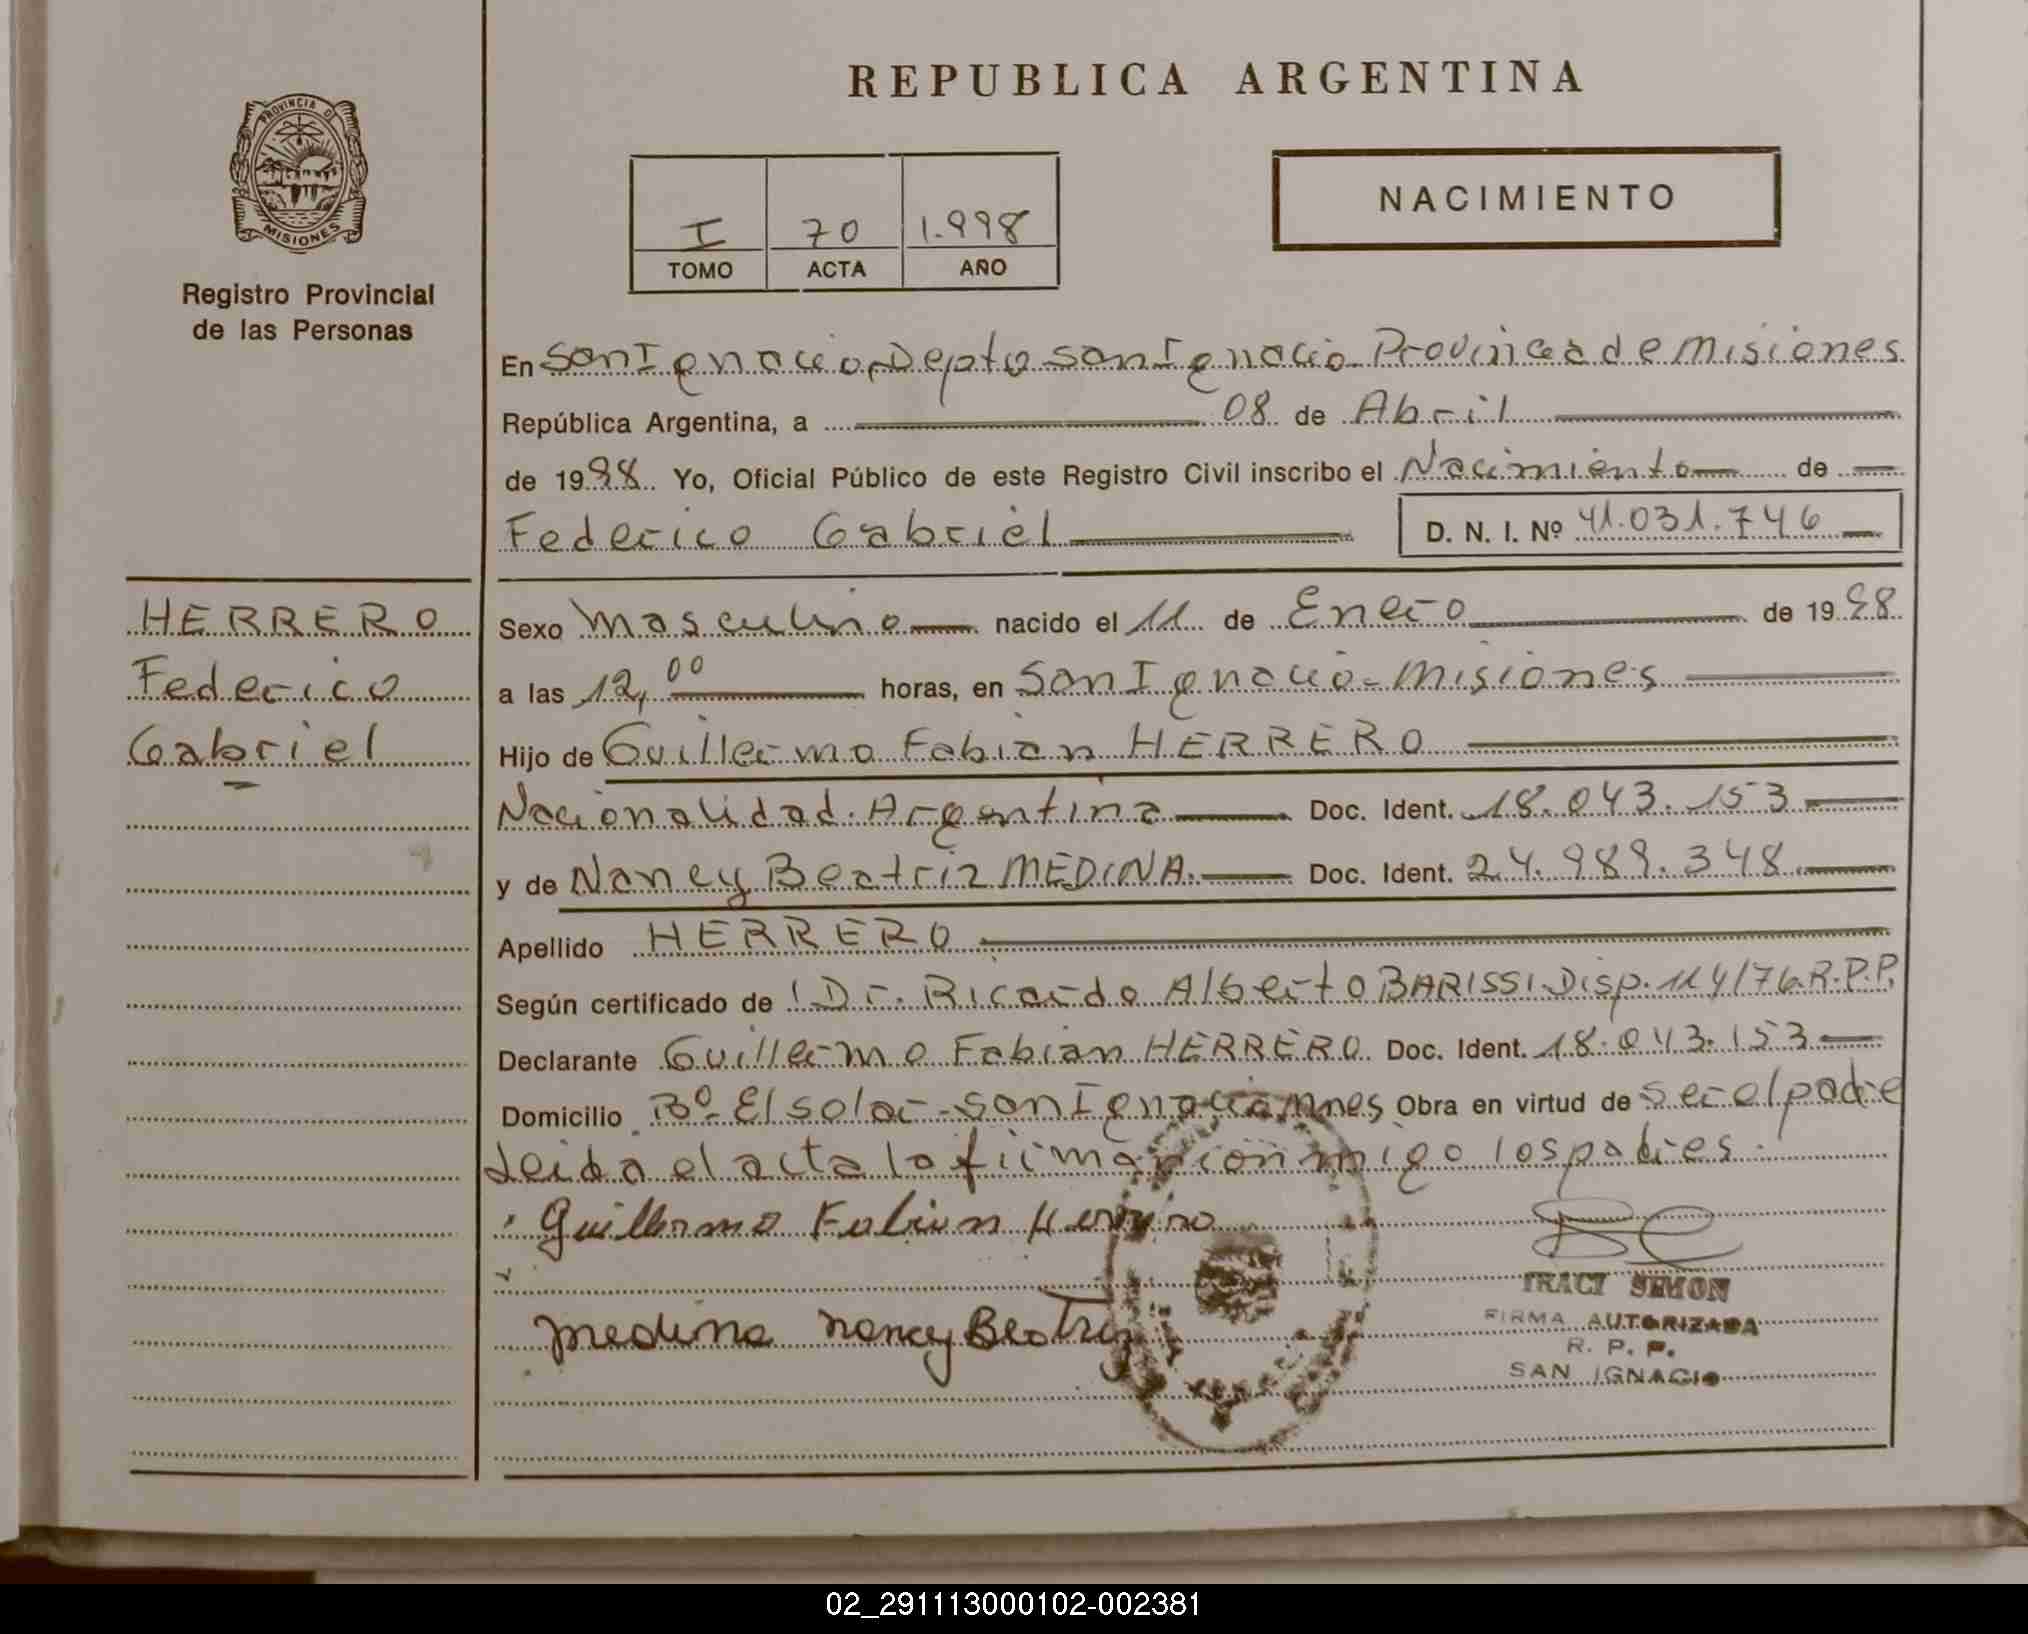 REPUBLICA ARGENTINA
PROVINCIA DE
MISIONES
Registro Provincial
de las Personas
NACIMIENTO
I 70 1.998
TOMO ACTA AÑO
En San Ignacio, Depto San Ignacio Provincia de Misiones
República Argentina, a 08 de Abril
de 1998. Yo, Oficial Público de este Registro Civil inscribo el Nacimiento de
Federico Gabriel D. N. I. Nº 41.031.746
HERRERO
Federico
Gabriel
Sexo Masculino nacido el 11 de Enero de 1998.
a las 12,00 horas, en San Ignacio - Misiones
Hijo de Guillermo Fabian HERRERO
Nacionalidad Argentina Doc. Ident. 18.043.153
y de Nancy Beatriz MEDINA. Doc. Ident. 24.989.348
Apellido HERRERO
Según certificado de Dr. Ricardo Alberto BARISSI. Disp. 114/76. R.P.P.
Declarante Guillermo Fabian HERRERO Doc. Ident. 18.043.153
Domicilio Bº El solar - San Ignacio Mnes Obra en virtud de ser el padre
Leida el acta la firman conmigo los padres.
Guillermo Fabian Herrero
Medina Nancy Beatriz
IRACI SIMON
FIRMA AUTORIZADA
R. P. P.
SAN IGNACIO
02_291113000102-002381